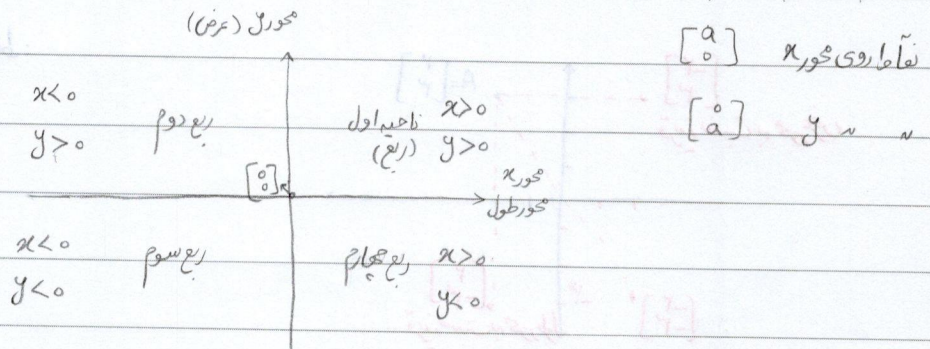 محور y (عرض)
نقاط روی محور x [a 0]
~ ~ y [0 a]
x<0
y>0
ربع دوم
ناحیه اول
(ربع)
x>0
y>0
[0 0]
محور x
محور طول
x<0
y<0
ربع سوم
ربع چهارم
x>0
y<0